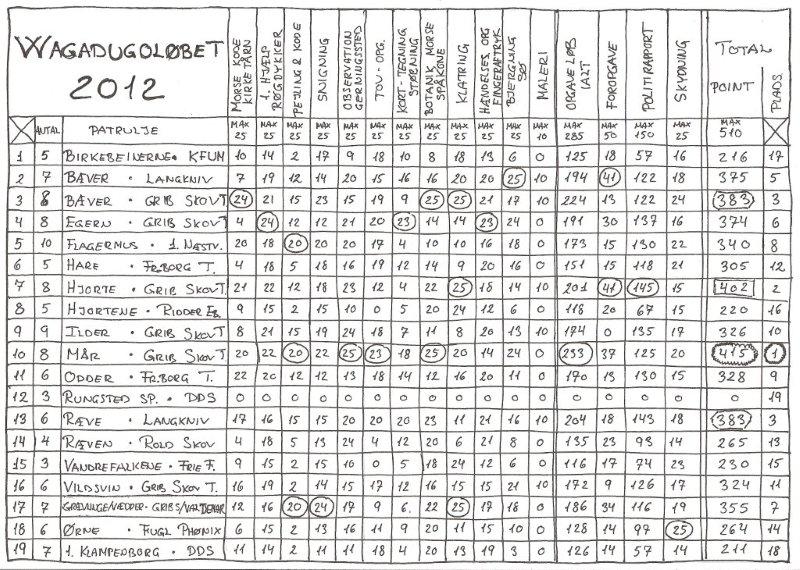 WAGADUGOLØBET 2012 MORSE KODE KIRKE TÅRN 1. HJÆLP RØGDYKKER PEJLING & KODE SNIGNING OBSERVATION GERNINGSSTED TOV-OPG. KORT-TEGNING STØBNING BOTANIK MORSE SPÅKONE KLATRING HÆNDELSES. OPG FINGERAFTRYK BJERGNING SØS MALERI OPGAVE LØB IALT FOROPGAVE POLITIRAPPORT SKYDNING TOTAL POINT PLADS.
ANTAL PATRULJE MAX 25 MAX 25 MAX 25 MAX 25 MAX 25 MAX 25 MAX 25 MAX 25 MAX 25 MAX 25 MAX 25 MAX 10 MAX 285 MAX 50 MAX 150 MAX 25 MAX 510
1 5 BIRKEBEINERNE • KFUM 10 14 2 17 9 18 10 8 18 13 6 0 125 18 57 16 216 17
2 7 BÆVER • LANGKNIV 7 19 12 14 20 15 16 16 20 20 25 10 194 41 122 18 375 5
3 8 BÆVER • GRIB SKOV T 24 21 15 23 15 19 9 25 25 21 17 10 224 13 122 24 383 3
4 8 EGERN • GRIB SKOV T. 4 24 12 12 21 20 23 14 14 23 24 0 191 30 137 16 374 6
5 10 FLAGERMUS • 1. NÆSTV. 20 18 20 20 20 17 4 10 10 16 18 0 173 15 130 22 340 8
6 5 HARE • FR.BORG T. 4 18 5 18 16 19 12 14 9 20 16 0 151 15 118 21 305 12
7 8 HJORTE • GRIB SKOV T. 21 22 12 18 23 12 4 22 25 18 14 10 201 41 145 15 402 2
8 5 HJORTENE • RIDDER EB. 9 15 2 15 10 0 5 20 24 12 6 0 118 20 67 15 220 16
9 9 ILDER • GRIB SKOV T 8 21 15 19 24 18 7 11 8 20 13 10 174 0 135 17 326 10
10 8 MÅR • GRIB SKOV T 20 22 20 22 25 23 18 25 20 14 24 0 233 37 125 20 415 1
11 6 ODDER • FR.BORG T. 22 20 12 12 13 18 14 12 16 20 11 0 170 13 130 15 328 9
12 3 RUNGSTED SP. • DDS 0 0 0 0 0 0 0 0 0 0 0 0 0 0 0 0 0 19
13 6 RÆVE • LANGKNIV 17 16 15 15 20 20 20 23 11 21 16 10 204 18 143 18 383 3
14 4 RÆVEN • ROLD SKOV 4 18 5 13 24 4 12 20 6 21 8 0 135 23 93 14 265 13
15 3 VANDREFALKENE • FRIE F. 9 15 2 15 10 0 5 18 24 12 6 0 116 17 74 23 230 15
16 6 VILDSVIN • GRIB SKOV T 16 19 2 14 15 17 12 16 15 15 21 10 172 9 126 17 324 11
17 7 GRÆVLINGE/VÆDDER • GRIB S/VALDEMAR 12 16 20 24 17 9 6 22 25 17 18 0 186 34 116 19 355 7
18 6 ØRNE • FUGL PHØNIX 6 15 2 13 16 11 9 20 11 15 10 0 128 14 97 25 264 14
19 7 1. KLAMPENBORG • DDS 11 14 2 11 11 18 4 20 13 19 3 0 126 14 57 14 211 18